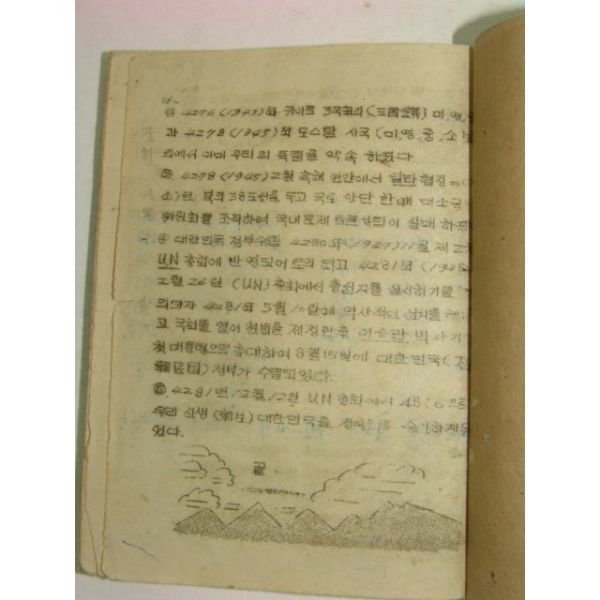 4276 (1943)年 카이로 3국회의 (三國会議) 미, 영,
과 4278 (1945)年 포스탐 사국 (미, 영, 중, 소)
의에서 이미 우리의 독립을 약속 하였다
4278 (1945) 2월 흑해 연안에서 얄타 협정
소)은 북위 38도선을 두고 국토 양단 한때 미소공
위원회를 조직하여 국내문제 토론 실패하
④ 대한민국 정부수립 4280年 (1947) 11월 제2
UN 총회에 반영되어 토의 되고 4281年 (194
2월 26일 (UN) 총회에서 총선거를 실시하기를
의되자 4281年 5월 10일에 역사적인 선거를
고 국회를 열어 헌법을 제정한후 이승만 박사
첫 대통령으로 추대하여 8월 15일에 대한민국
정부가 수립되었다.
⑤ 4281년 12월 12일 UN 총회에서 48:6으로
우리 신생 대한민국을 승인하게
었다.
끝